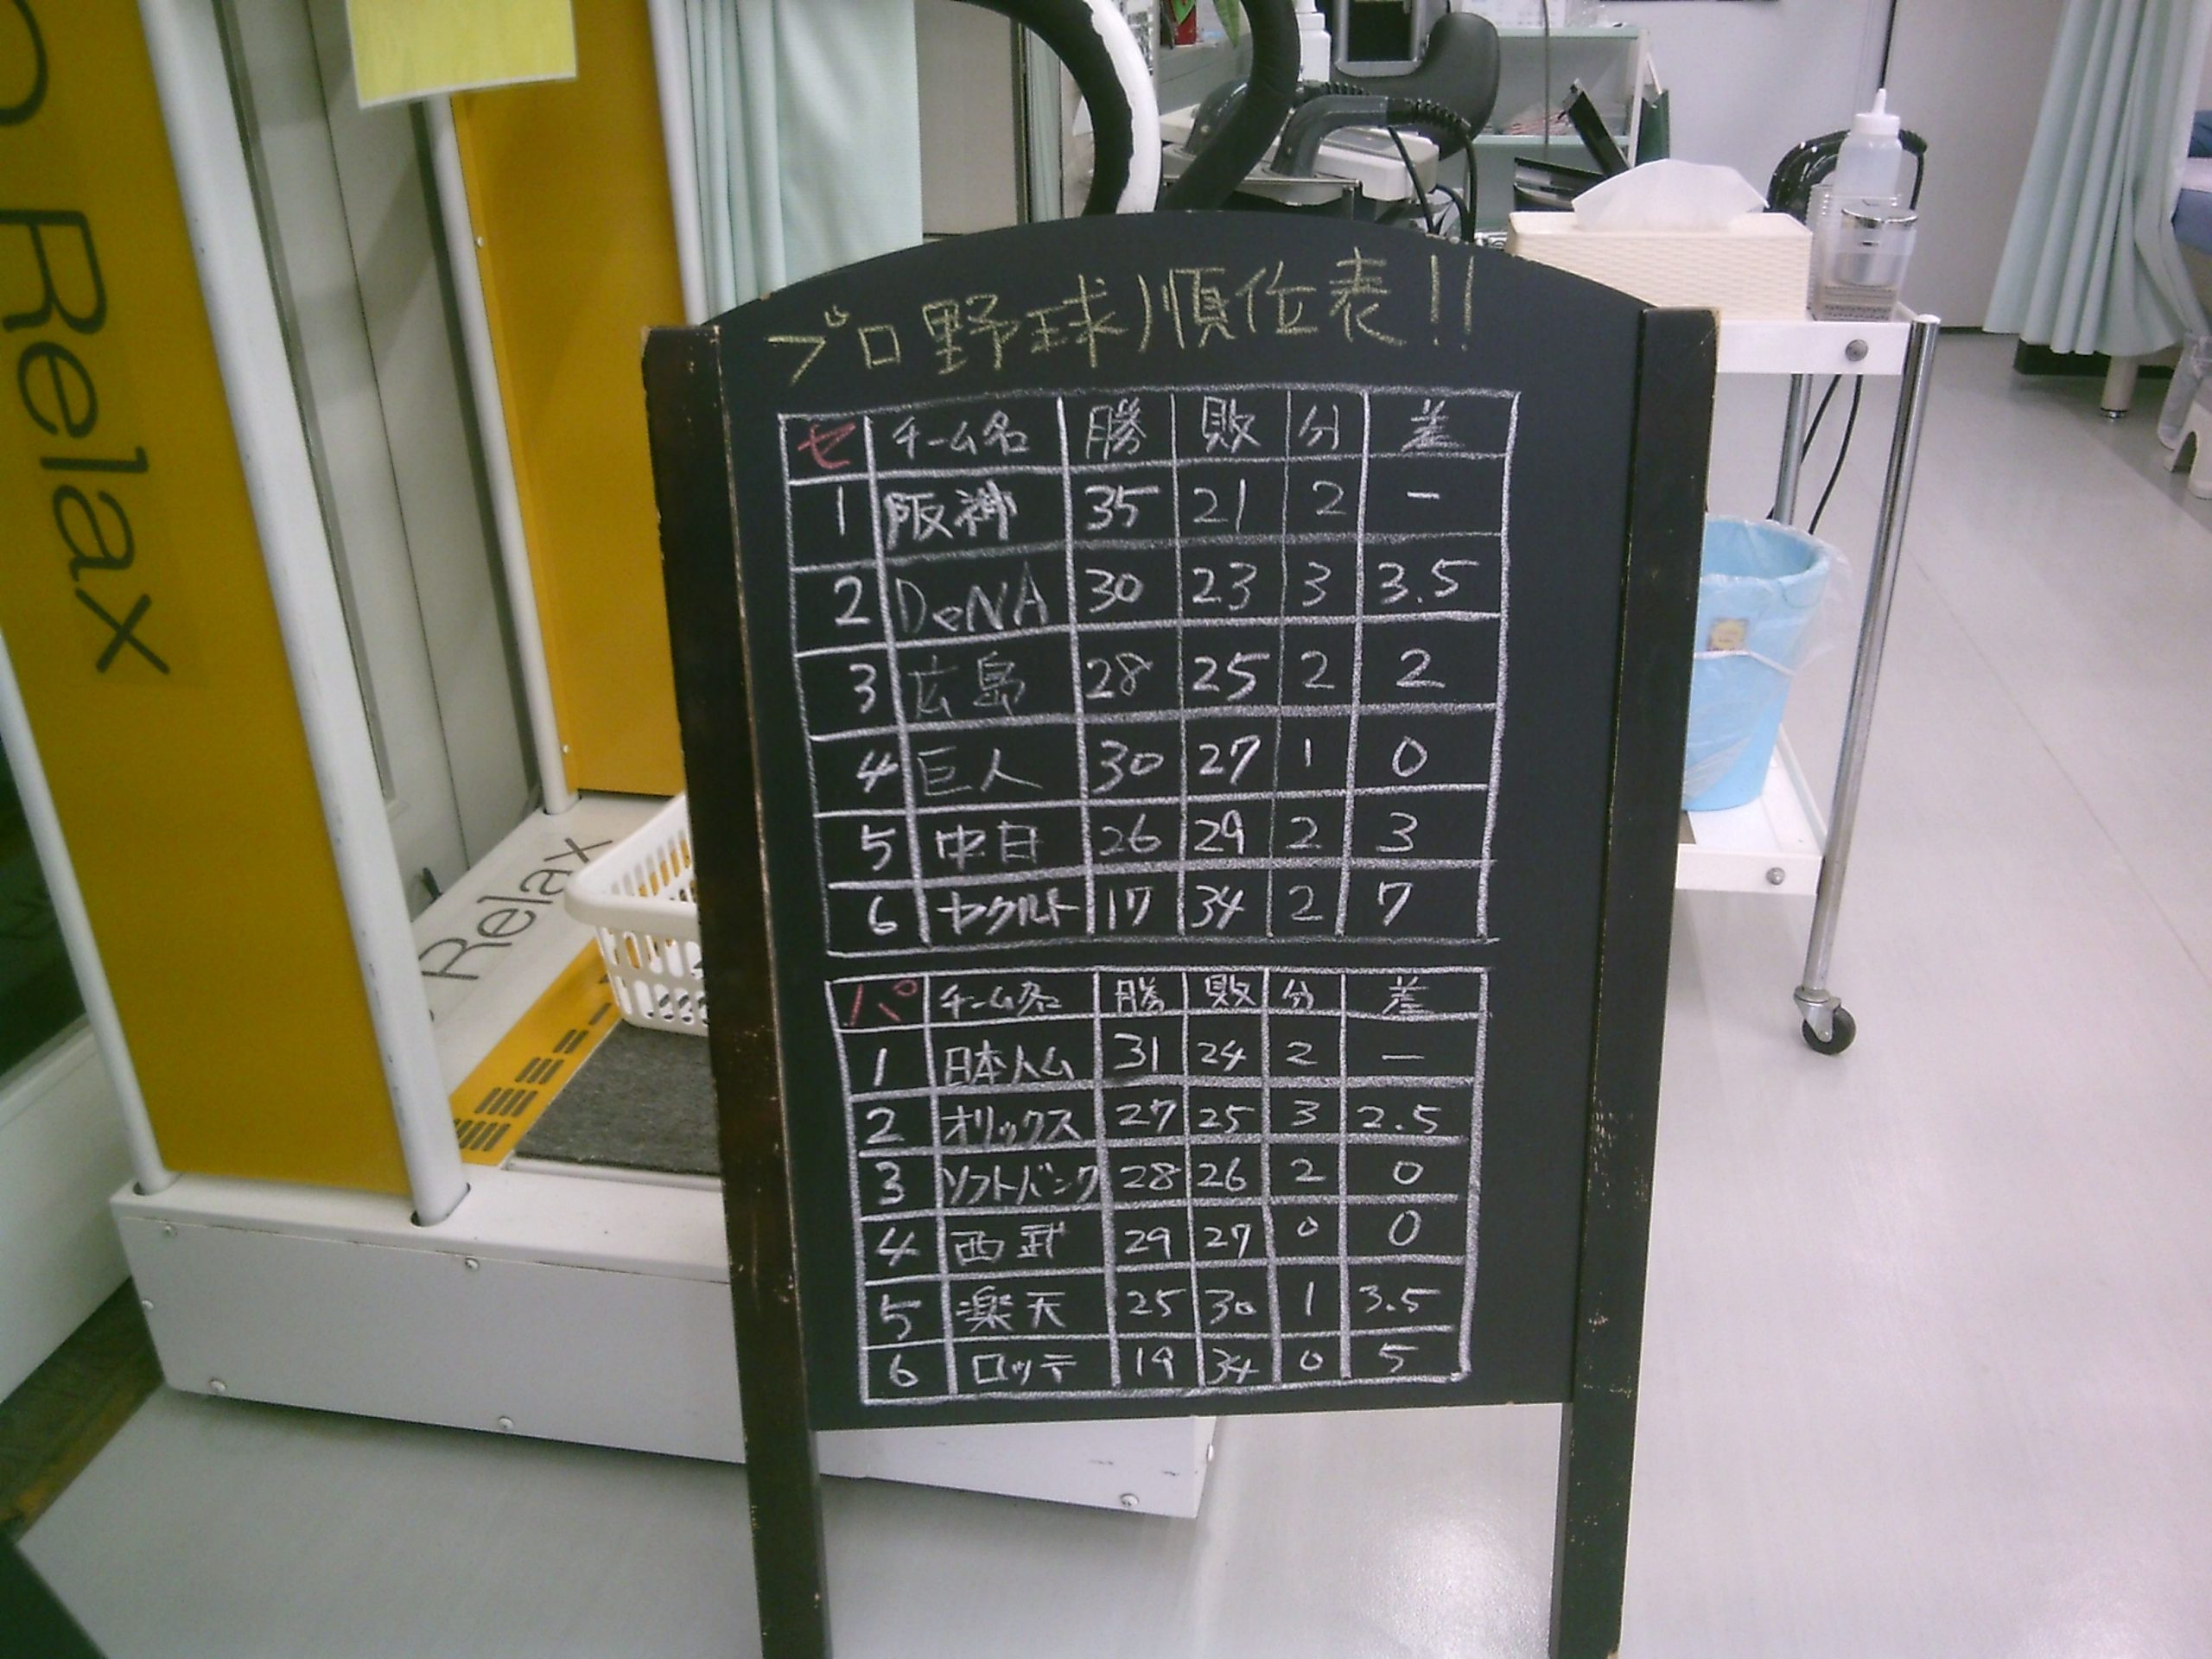 プロ野球順位表!!
セ チーム名 勝 敗 分 差
1 阪神 35 21 2 −
2 DeNA 30 23 3 3.5
3 広島 28 25 2 2
4 巨人 30 27 1 0
5 中日 26 29 2 3
6 ヤクルト 17 34 2 7
パ チーム名 勝 敗 分 差
1 日本ハム 31 24 2 −
2 オリックス 27 25 3 2.5
3 ソフトバンク 28 26 2 0
4 西武 29 27 0 0
5 楽天 25 30 1 3.5
6 ロッテ 19 34 0 5
Relax
Relax